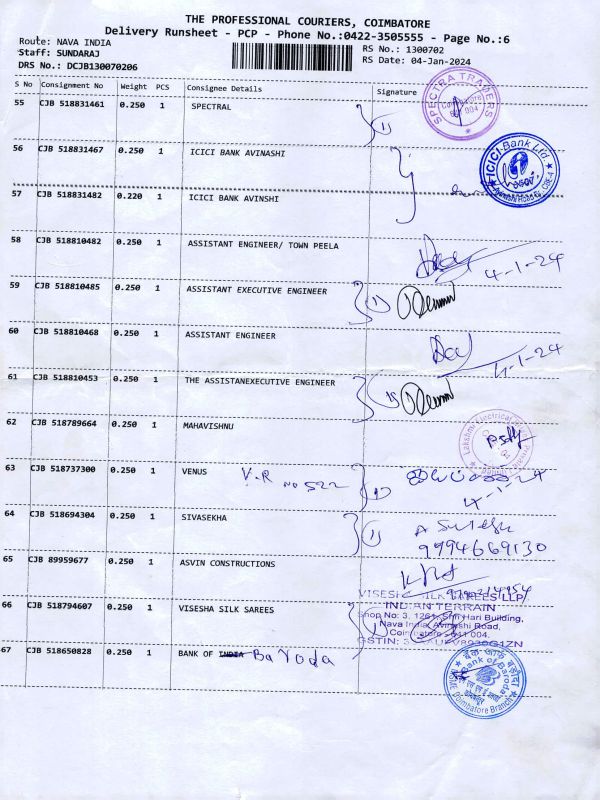 THE PROFESSIONAL COURIERS, COIMBATORE
Delivery Runsheet - PCP - Phone No.:0422-3505555 - Page No.:6
Route: NAVA INDIA
Staff: SUNDARAJ
DRS No.: DCJB130070206
RS No.: 1300702
RS Date: 04-Jan-2024
S No Consignment No Weight PCS Consignee Details Signature
55 CJB 518831461 0.250 1 SPECTRAL
SPECTRA TRADERS
56 CJB 518831467 0.250 1 ICICI BANK AVINASHI
ICICI Bank Ltd
57 CJB 518831482 0.220 1 ICICI BANK AVINSHI
58 CJB 518810482 0.250 1 ASSISTANT ENGINEER/ TOWN PEELA
4-1-24
59 CJB 518810485 0.250 1 ASSISTANT EXECUTIVE ENGINEER
60 CJB 518810468 0.250 1 ASSISTANT ENGINEER
4-1-24
61 CJB 518810453 0.250 1 THE ASSISTANEXECUTIVE ENGINEER
62 CJB 518789664 0.250 1 MAHAVISHNU
63 CJB 518737300 0.250 1 VENUS V.R no 522
4-1-24
64 CJB 518694304 0.250 1 SIVASEKHA
9994669130
65 CJB 89959677 0.250 1 ASVIN CONSTRUCTIONS
VISESHA SILK SAREES LLP
INDIAN TERRAIN
66 CJB 518794607 0.250 1 VISESHA SILK SAREES
Shop No: 3, 1261, Shri Hari Building,
Nava India, Avinashi Road,
Coimbatore - 641 004.
67 CJB 518650828 0.250 1 BANK OF INDIA Baroda
Bank of Baroda
Coimbatore Branch